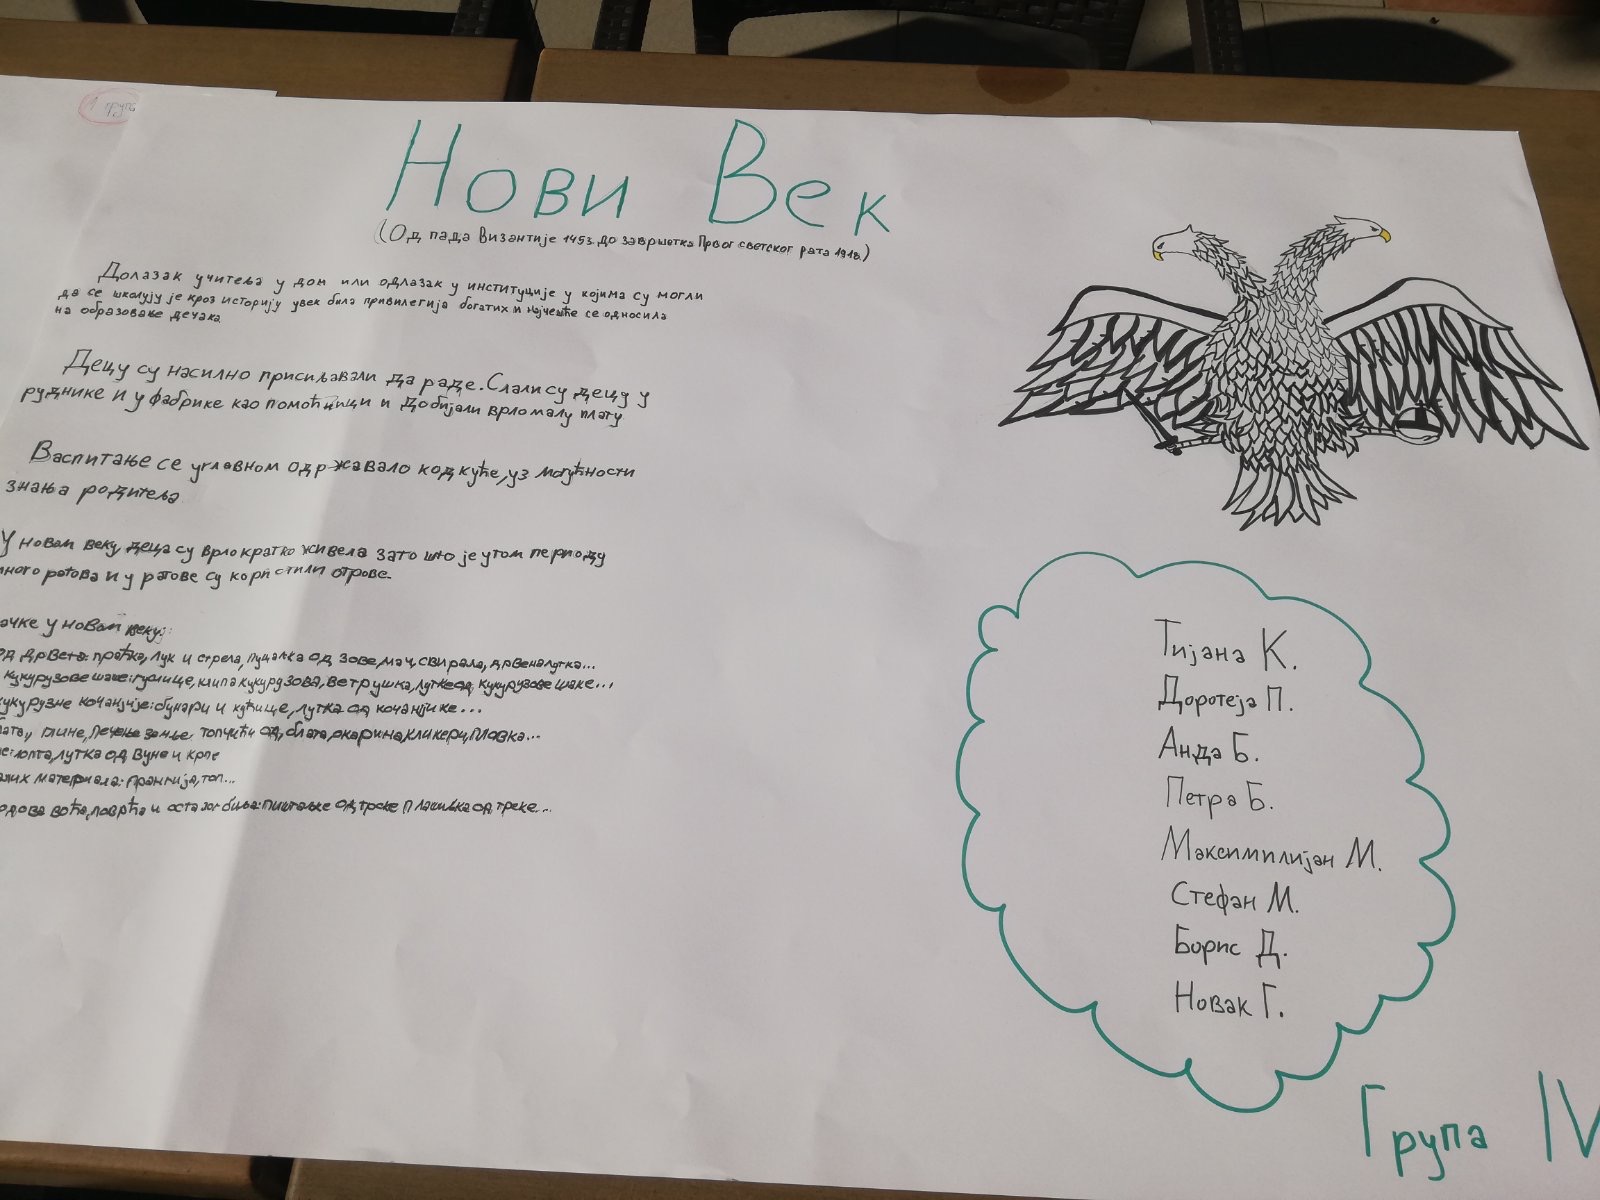 1 група
Нови Век
(Од пада Византије 1453. до завршетка Првог светског рата 1918.)
Долазак учитеља у дом или одлазак у институције у којима су могли
да се школују је кроз историју увек била привилегија богатих и најчешће се односила
на образовање дечака
Децу су насилно присиљавали да раде. Слали су децу у
руднике и у фабрике као помоћници и добијали врло малу плату
Васпитање се углавном одржавало код куће, уз могућности
знања родитеља
У новом веку, деца су врло кратко живела зато што је у том периоду
много ратова и у ратове су користили отрове.
ачке у новом веку:
од дрвета: праћка, лук и стрела, пуцаљка од зове, мач, свирала, дрвена лутка...
кукурузове шаше: гуслице, клипа кукурузова, ветрушка, лутке од кукурузове шаше...
кукурузне кочањчије: бунари и кућице, лутка од кочањчике...
лата, глине, печење земље топчићи од блата, окарина, кликери, пловка...
е: лопта, лутка од вуне и крпе
алих материјала: прангија, топ...
одова воћа, поврћа и осталог биља: пиштаљке од трске плашивка од треке...
Тијана К.
Доротеја П.
Анда Б.
Петра Б.
Максимилијан М.
Стефан М.
Борис Д.
Новак Г.
Група IV